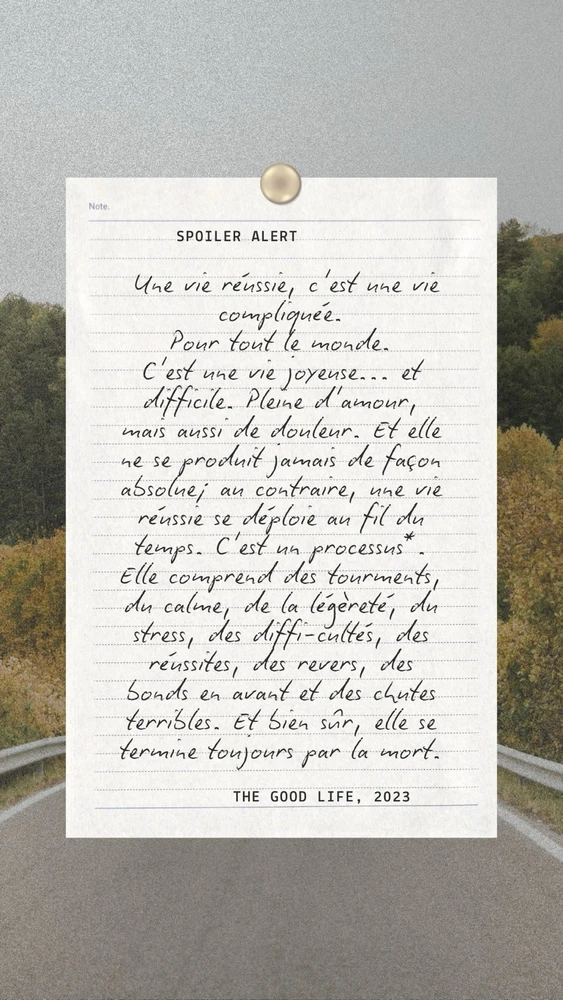 Note.
SPOILER ALERT
Une vie réussie, c'est une vie
compliquée.
Pour tout le monde.
C'est une vie joyeuse... et
difficile. Pleine d'amour,
mais aussi de douleur. Et elle
ne se produit jamais de façon
absolue; au contraire, une vie
réussie se déploie au fil du
temps. C'est un processus*.
Elle comprend des tourments,
du calme, de la légèreté, du
stress, des diffi-cultés, des
réussites, des revers, des
bonds en avant et des chutes
terribles. Et bien sûr, elle se
termine toujours par la mort.
THE GOOD LIFE, 2023